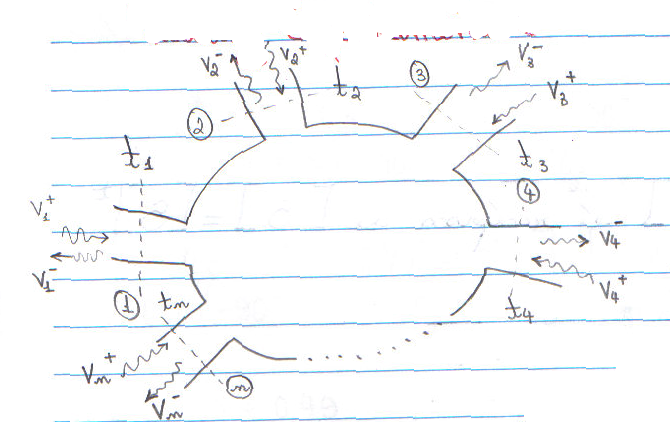 V₂⁻
V₂⁺
t₂
③
V₃⁻
V₃⁺
②
t₁
t₃
④
V₁⁺
V₁⁻
V₄⁻
V₄⁺
①
tₙ
t₄
Vₙ⁺
Vₙ⁻
ⓝ